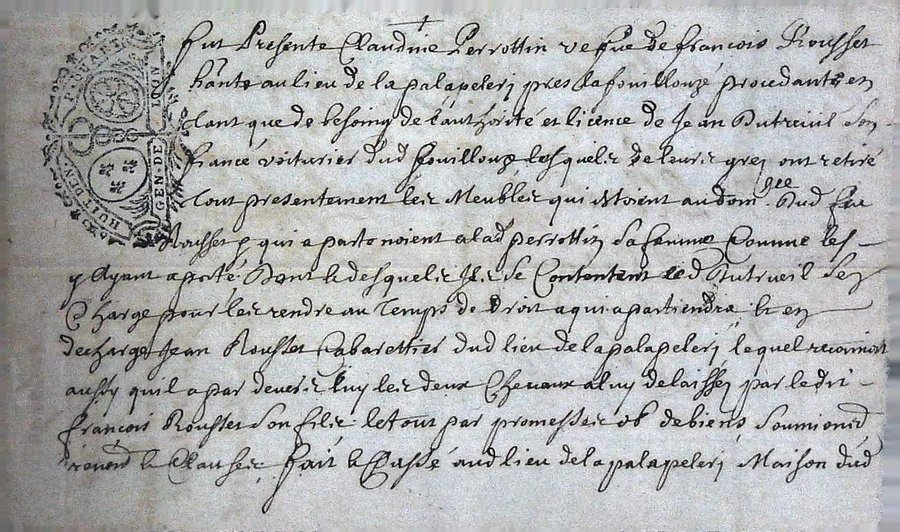 Fut Presente Claudine Perrottin vefue de francois Rousset
hante au lieu de la palapeleri pres la fouillouze procedante en
tant que de besoing de l'authorité et licence de Jean Dutreuil son
fiancé voiturier dud fouillouze lesquelz de leurs grez ont retiré
tout presentement les Meubles qui estoient au dom.lle dud feu
Rousset & qui apartenoient a lad perrottin sa femme Comme les
y Ayant aporté dont & desquelz Ilz se Contentent led dutreuil sen
Charge pour les rendre au Temps de Droit a qui apartiendra & en
decharge Jean Rousset Cabarettier dud lieu de la palapeleri lequel reconnoit
aussy quil a par devers luy les deux Chevaux a luy delaissez par ledit
francois Rousset son filz le tout par promesses ob de biens soumiond
renond & Clauses fait & Passé aud lieu de la palapeleri Maison dud
HUIT DEN.
GEN. DE LION